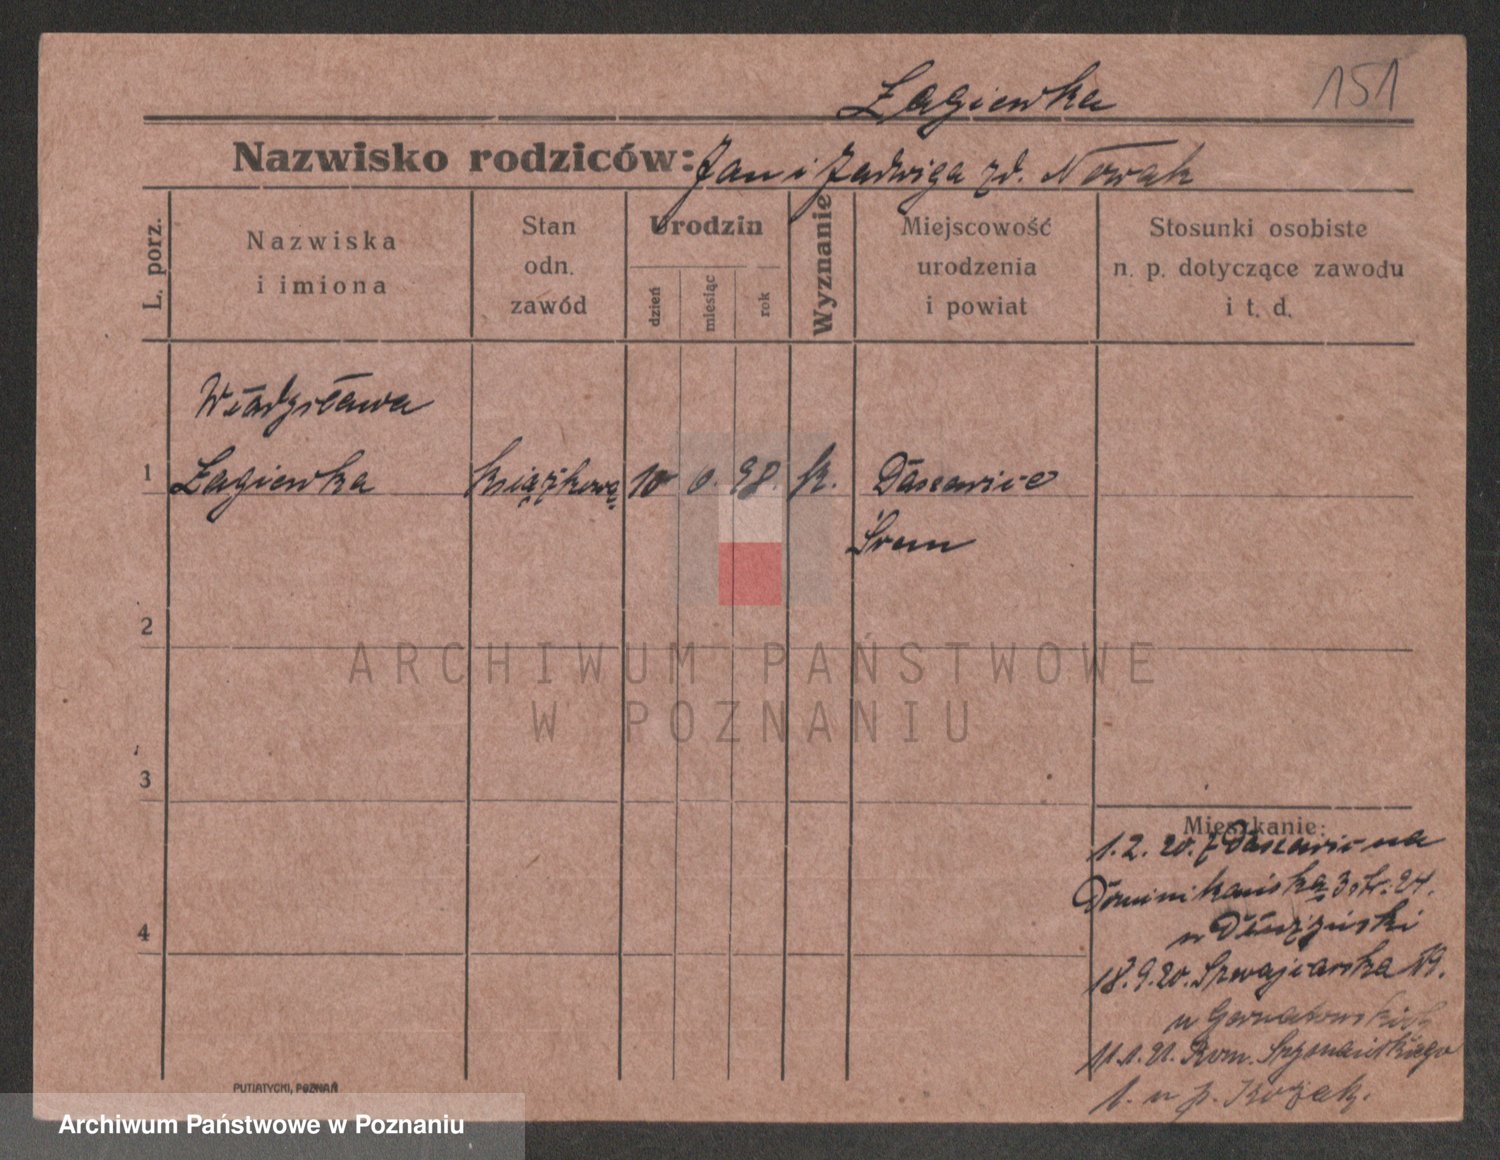 151
Łagiewka
Nazwisko rodziców: Jan i Jadwiga zd. Nowak
L. porz.
Nazwiska
i imiona
Stan
odn.
zawód
Urodzin
dzień
miesiąc
rok
Wyznanie
Miejscowość
urodzenia
i powiat
Stosunki osobiste
n. p. dotyczące zawodu
i t. d.
Władysława
1 Łagiewka książkową 10 98. k.
Śrem
2
ARCHIWUM PAŃSTWOWE
W POZNANIU
3
Mieszkanie:
1. 2. 20. z
Dominikańska 3 str. 24.
u
18. 9. 20. Szwajcarska 19.
u
11. 1. 21. Rom. Szymańskiego
1. u p. Kozak.
PUTIATYCKI, POZNAŃ
Archiwum Państwowe w Poznaniu